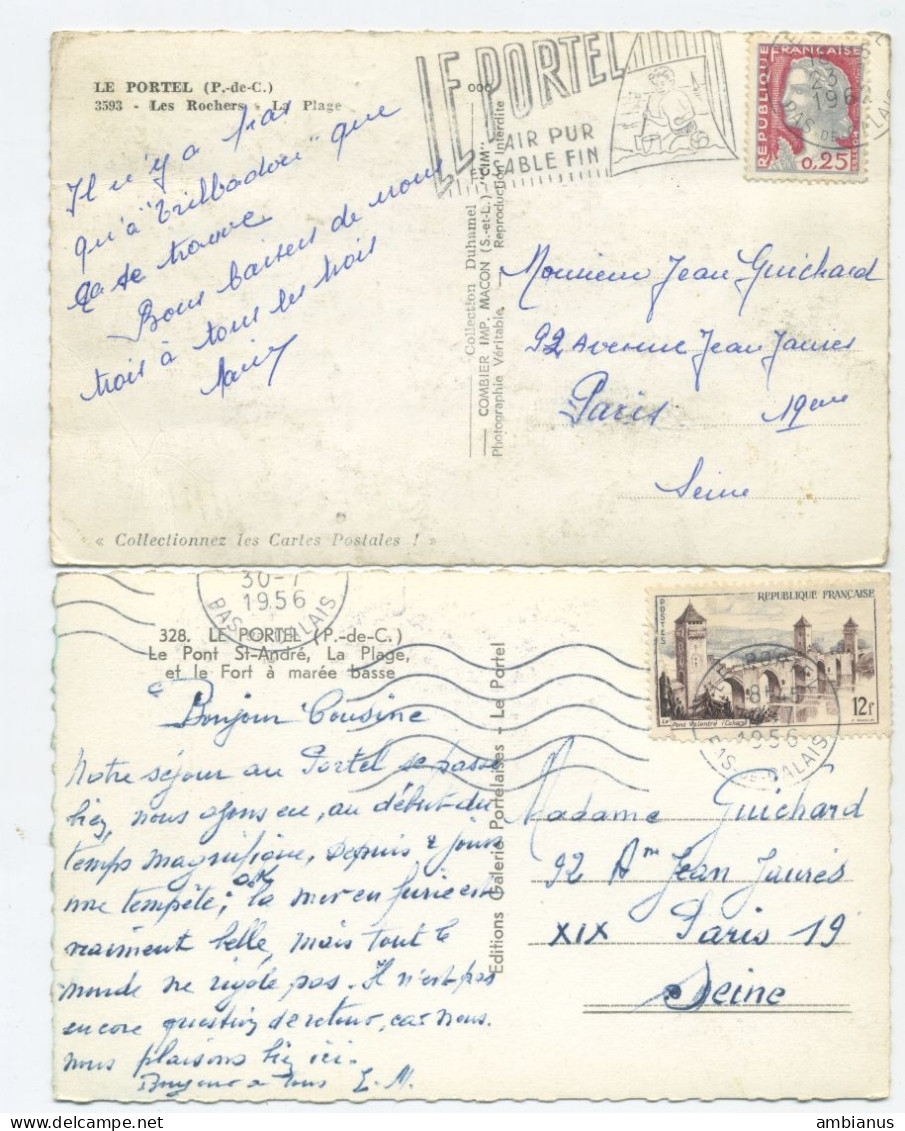 LE PORTEL (P.-de-C.)
3593 - Les Rochers - La Plage
Il n'y a pas
qu'à "Trilbadou" que
ça se trouve.
Bons baisers de nous
trois à tous les trois
« Collectionnez les Cartes Postales ! »
Collection Duhamel
COMBIER IMP. MACON (S.-et-L.) "CIM"
Photographie Véritable Reproduction Interdite
LE PORTEL
AIR PUR
SABLE FIN
196
PAS-DE-CALAIS
REPUBLIQUE
FRANÇAISE
0,25
Monsieur Jean Guichard
92 Avenue Jean Jaures
Paris 19eme
Seine
30-7
1956
PAS-DE-CALAIS
328. LE PORTEL (P.-de-C.)
Le Pont St-André, La Plage,
et le Fort à marée basse
Bonjour Cousine
Notre séjour au Portel se passe
bien, nous avons eu, au début du
temps magnifique, depuis 2 jours
une tempête; la mer en furie est
vraiment belle, mais tout le
monde ne rigole pas. Il n'est pas
encore question de retour, car nous
nous plaisons bien ici.
Bonjour a tous E. M.
Editions Galerie Portelaises - Le Portel
REPUBLIQUE FRANÇAISE
POSTES
Le Pont Valentré (Cahors)
12f
LE PORTEL
1956
PAS-DE-CALAIS
Madame Guichard
92 Ave Jean Jaurès
XIX Paris 19
Seine
ambianus